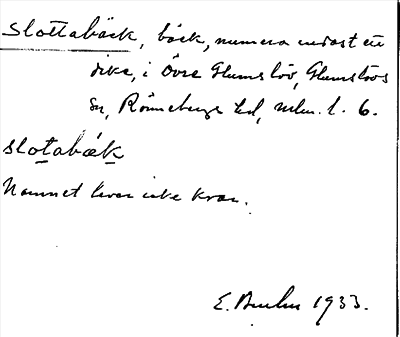 Slottabäck, bäck, numera endast ett
dike, i Övre Glumslöv, Glumslövs
sn, Rönnebergs hd, Mlm. l. 6.
slotabæk
Namnet lever icke kvar.
E. 1933.